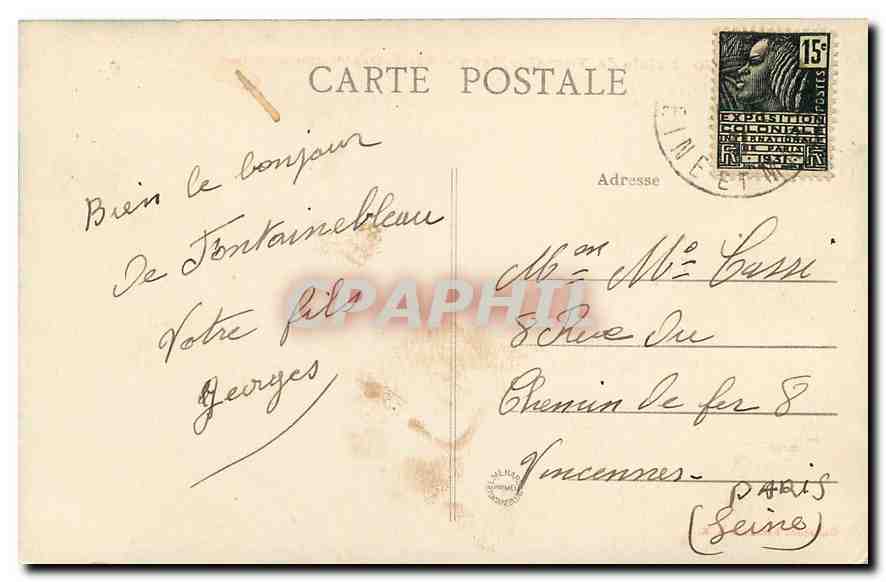 CARTE POSTALE
15c
POSTES
EXPOSITION
COLONIALE
INTERNATIONALE
DE PARIS
1931
INE ET M
Adresse
Bien le bonjour
de Fontainebleau
Votre fils
Georges
Mme Mo Cassi
8 Rue du
Chemin de fer 8
Vincennes-
PARIS
(Seine)
CPAPHIL